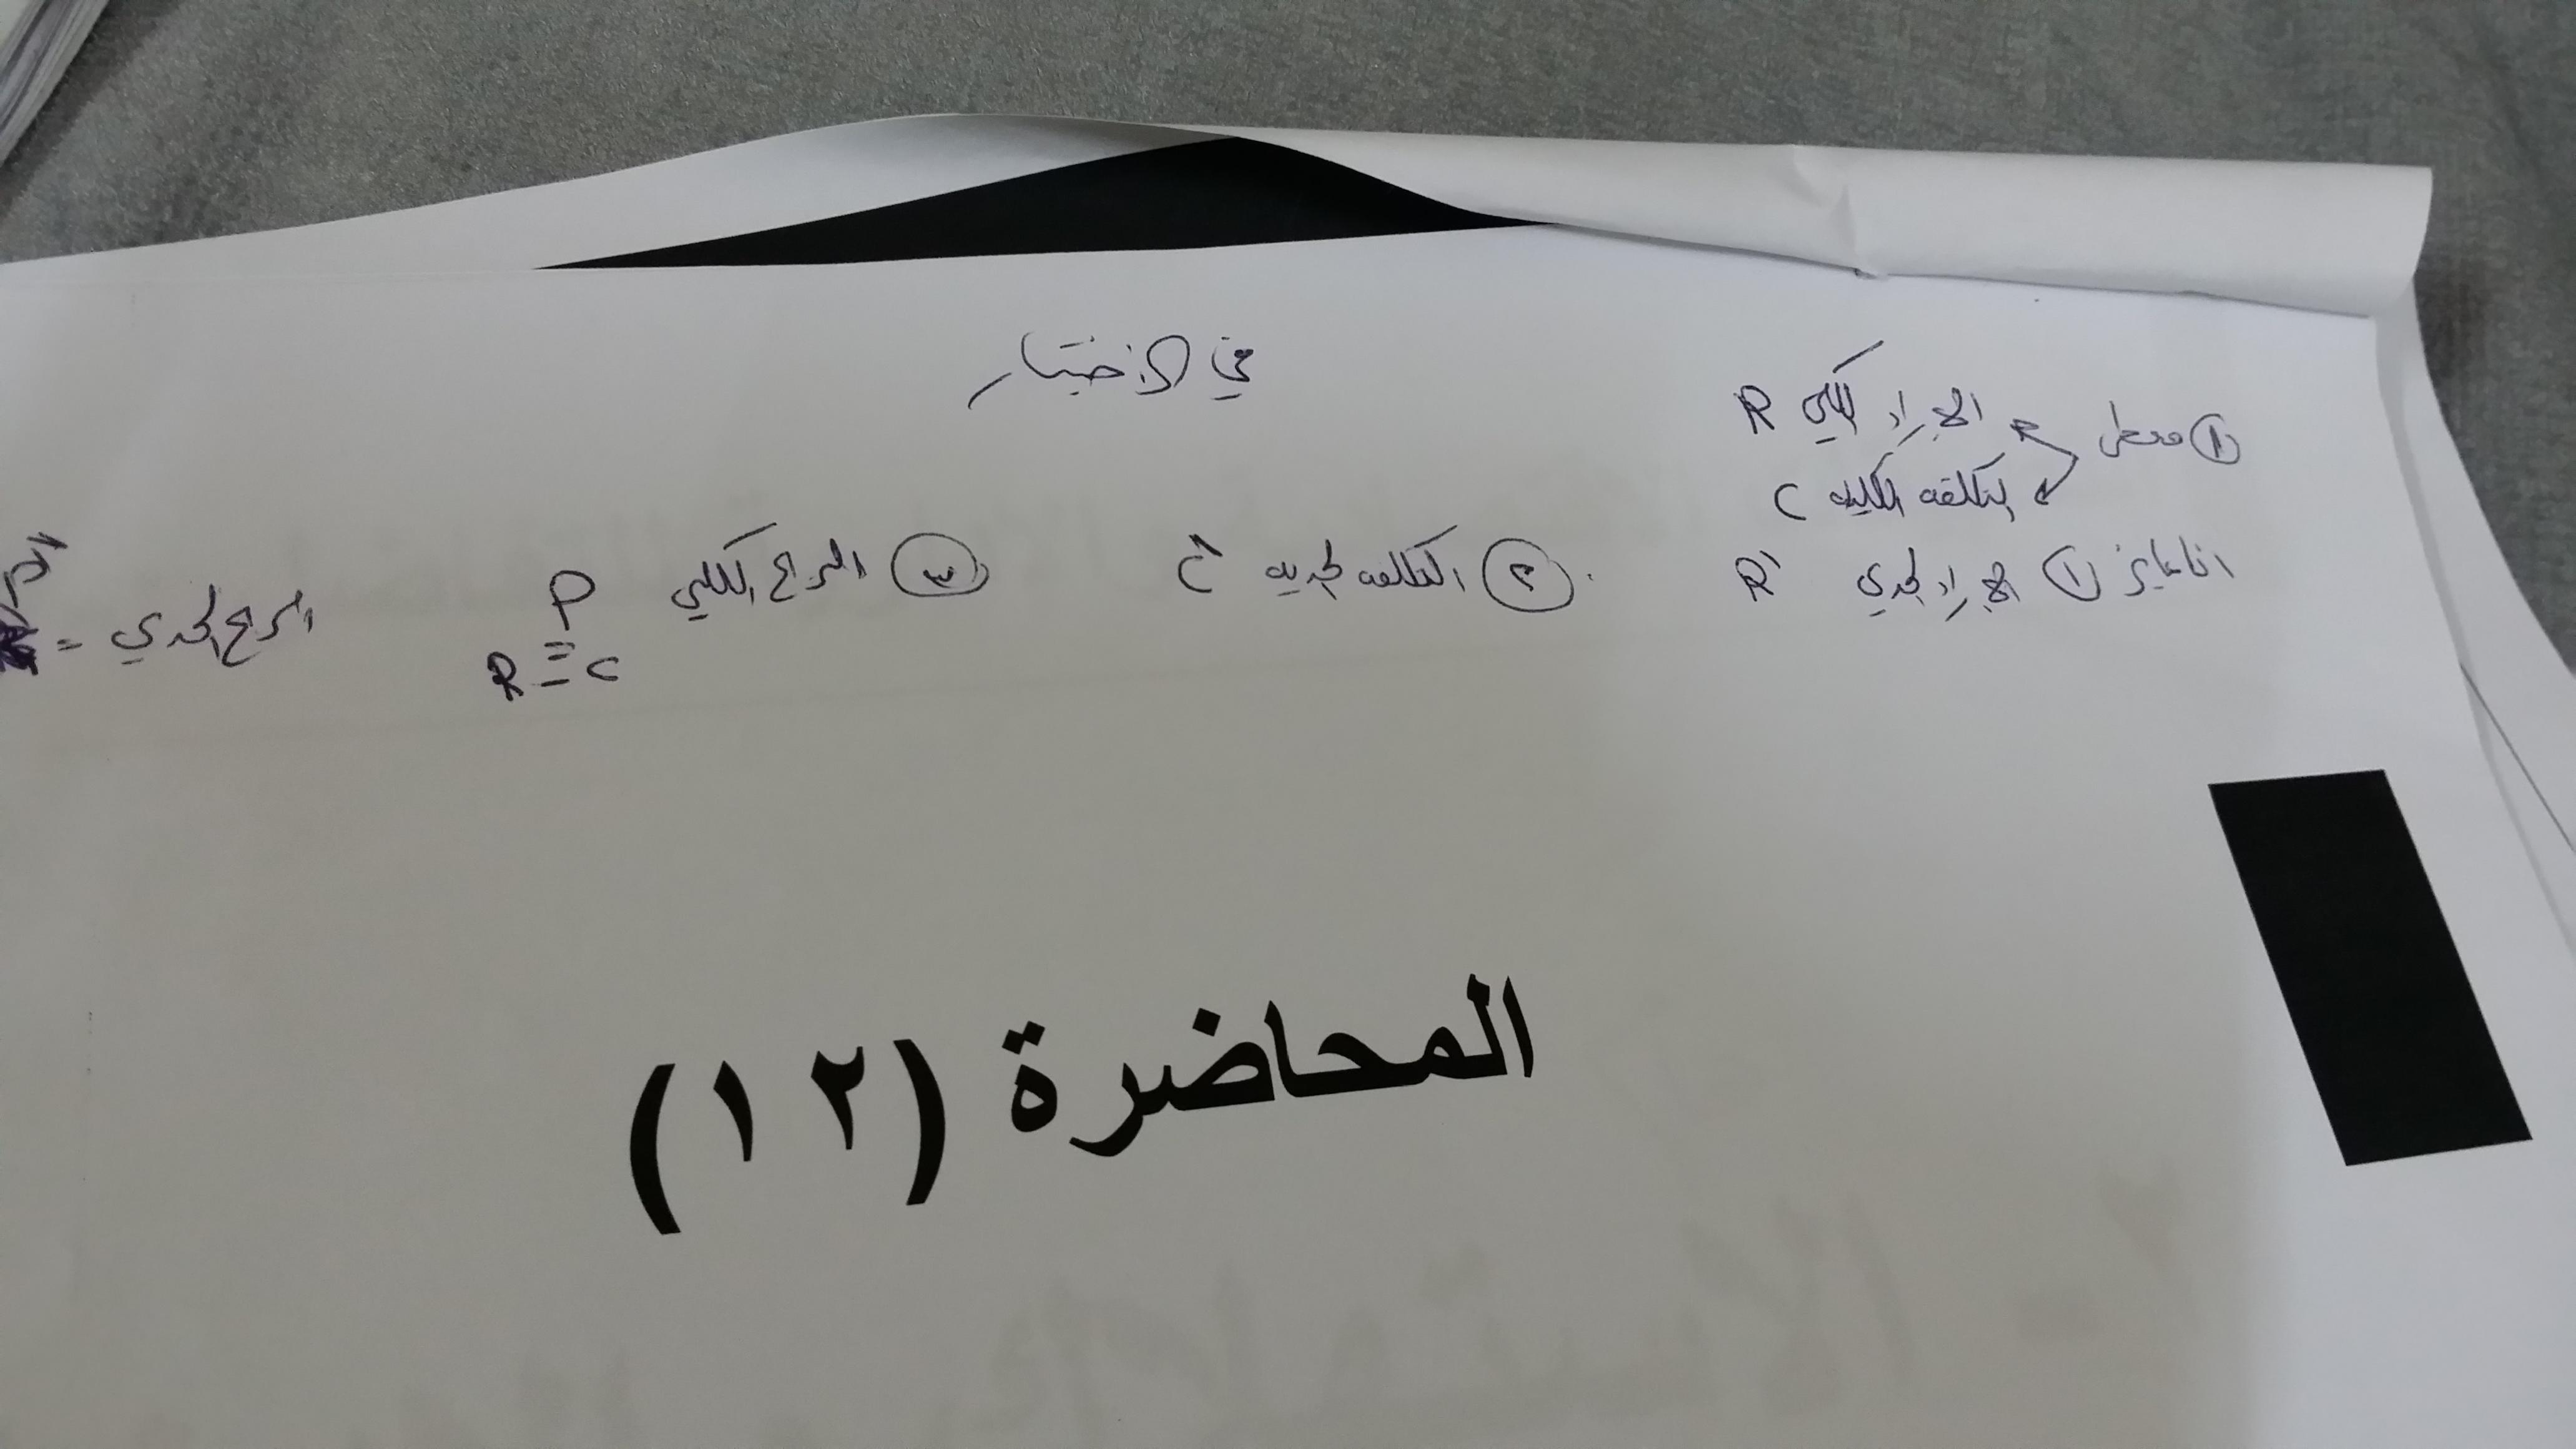 في الاختبار
① معطى الايراد الكلي R
التكلفه الكليه C
انا عايز ① الايراد الحدي R'
② التكلفه الحديه C'
③ الربح الكلي P
=
R - C
الربح الحدي =
المحاضرة (١٢)